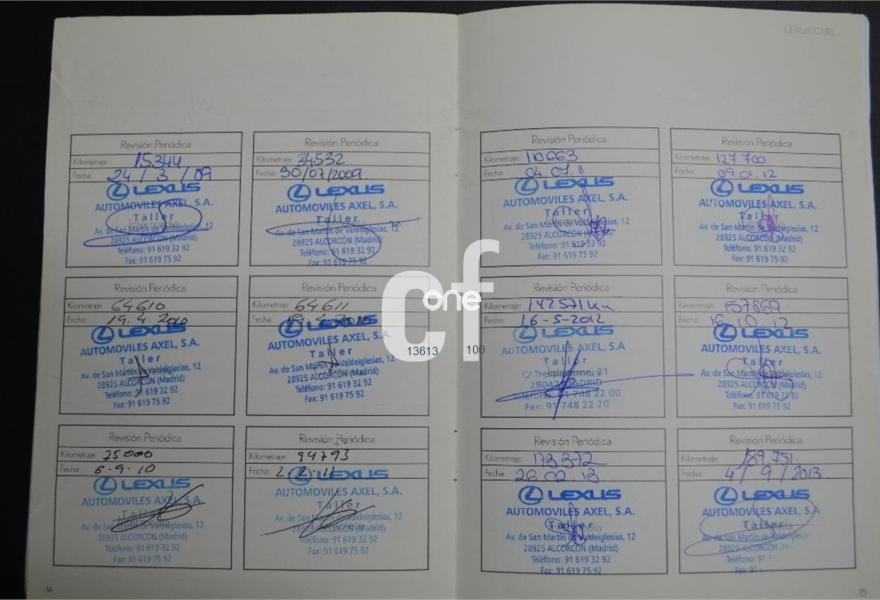 LEXUS CARE
Revisión Periódica
Kilometraje: 15344
Fecha: 24/3/09
LEXUS
AUTOMOVILES AXEL, S.A.
Taller
Av. de San Martín de Valdeiglesias, 12
28925 ALCORCÓN (Madrid)
Teléfono: 91 619 32 92
Fax: 91 619 75 92
Revisión Periódica
Kilometraje: 34532
Fecha: 30/07/2009.
LEXUS
AUTOMOVILES AXEL, S.A.
Taller
Av. de San Martín de Valdeiglesias, 12
28925 ALCORCÓN (Madrid)
Teléfono: 91 619 32 92
Fax: 91 619 75 92
Revisión Periódica
Kilometraje: 64610
Fecha: 19.4.2010
LEXUS
AUTOMOVILES AXEL, S.A.
Taller
Av. de San Martín de Valdeiglesias, 12
28925 ALCORCÓN (Madrid)
Teléfono: 91 619 32 92
Fax: 91 619 75 92
Revisión Periódica
Kilometraje: 64611
Fecha:
LEXUS
AUTOMOVILES AXEL, S.A.
Taller
Av. de San Martín de Valdeiglesias, 12
28925 ALCORCÓN (Madrid)
Teléfono: 91 619 32 92
Fax: 91 619 75 92
Revisión Periódica
Kilometraje: 75000
Fecha: 6-9-10
LEXUS
AUTOMOVILES AXEL, S.A.
Taller
Av. de San Martín de Valdeiglesias, 12
28925 ALCORCÓN (Madrid)
Teléfono: 91 619 32 92
Fax: 91 619 75 92
Revisión Periódica
Kilometraje: 94793
Fecha: 2.2.11
LEXUS
AUTOMOVILES AXEL, S.A.
Taller
Av. de San Martín de Valdeiglesias, 12
28925 ALCORCÓN (Madrid)
Teléfono: 91 619 32 92
Fax: 91 619 75 92
14
Revisión Periódica
Kilometraje: 110663
Fecha: 04.07.11
LEXUS
AUTOMOVILES AXEL, S.A.
Taller
Av. de San Martín de Valdeiglesias, 12
28925 ALCORCÓN (Madrid)
Teléfono: 91 619 32 92
Fax: 91 619 75 92
Revisión Periódica
Kilometraje: 127700
Fecha: 09.01.12
LEXUS
AUTOMOVILES AXEL, S.A.
Taller
Av. de San Martín de Valdeiglesias, 12
28925 ALCORCÓN (Madrid)
Teléfono: 91 619 32 92
Fax: 91 619 75 92
Revisión Periódica
Kilometraje: 142571km
Fecha: 16-5-2012
LEXUS
AUTOMOVILES AXEL, S.A.
Taller
21
MADRID
Teléfono: 91 748 22 00
Fax: 91 748 22 20
Revisión Periódica
Kilometraje: 157869
Fecha: 16.10.12
LEXUS
AUTOMOVILES AXEL, S.A.
Taller
Av. de San Martín de Valdeiglesias, 12
28925 ALCORCÓN (Madrid)
Teléfono: 91 619 32 92
Fax: 91 619 75 92
Revisión Periódica
Kilometraje: 173372
Fecha: 26.02.13
LEXUS
AUTOMOVILES AXEL, S.A.
Taller
Av. de San Martín de Valdeiglesias, 12
28925 ALCORCÓN (Madrid)
Teléfono: 91 619 32 92
Fax: 91 619 75 92
Revisión Periódica
Kilometraje: 189.751.
Fecha: 4/9/2013
LEXUS
AUTOMOVILES AXEL, S.A.
Taller
Av. de San Martín de Valdeiglesias, 12
28925 ALCORCÓN
Teléfono: 91
Fax: 91
15
cf one
13613 100